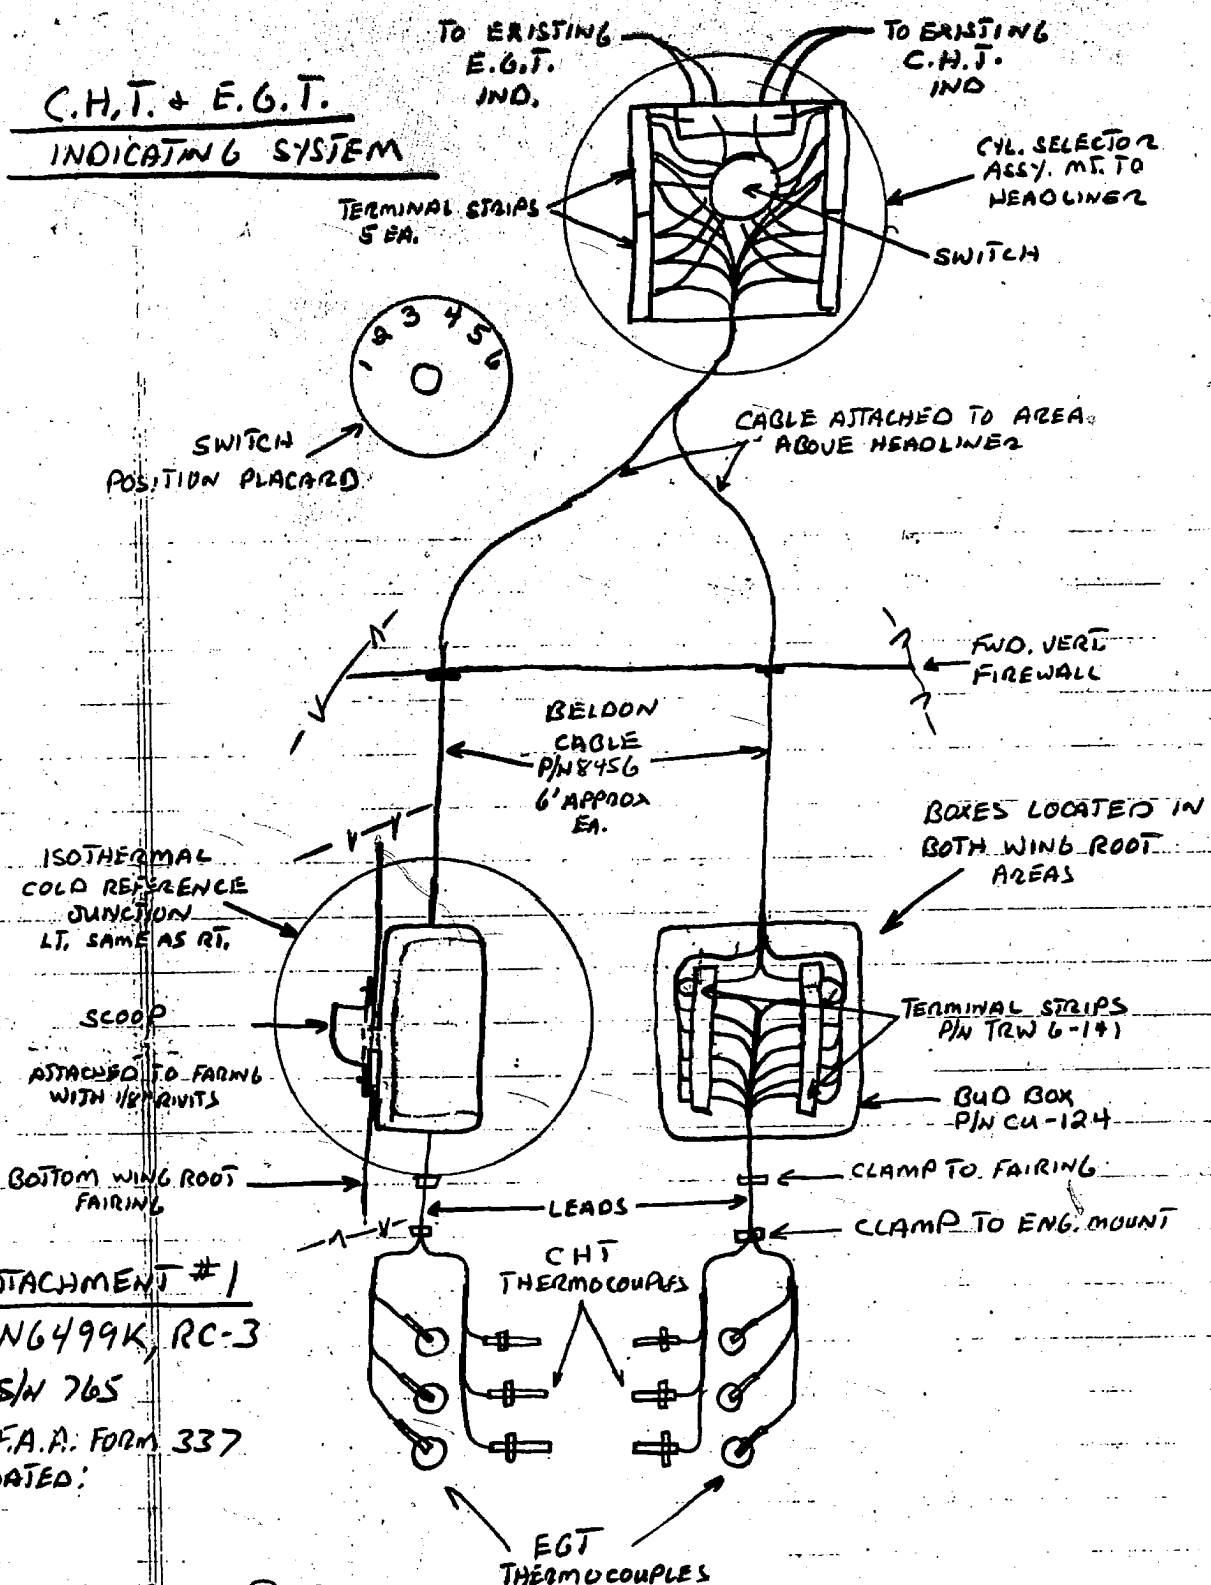 C.H.T. & E.G.T.
INDICATING SYSTEM
TO EXISTING
E.G.T.
IND.
TO EXISTING
C.H.T.
IND
CYL. SELECTOR
ASSY. MT. TO
HEADLINER
TERMINAL STRIPS
5 EA.
SWITCH
1 2 3 4 5 6
SWITCH
POSITION PLACARD
CABLE ATTACHED TO AREA
ABOVE HEADLINER
FWD. VERT
FIREWALL
BELDON
CABLE
P/N 8456
6' APPROX
EA.
BOXES LOCATED IN
BOTH WING ROOT
AREAS
ISOTHERMAL
COLD REFERENCE
JUNCTION
LT. SAME AS RT.
SCOOP
ATTACHED TO FARING
WITH 1/8" RIVITS
TERMINAL STRIPS
P/N TRW 6-141
BUD BOX
P/N CU-124
BOTTOM WING ROOT
FAIRING
CLAMP TO FAIRING
LEADS
CLAMP TO ENG. MOUNT
CHT
THERMOCOUPLES
TTACHMENT #1
N6499K, RC-3
S/N 765
F.A.A. FORM 337
DATED:
EGT
THERMOCOUPLES